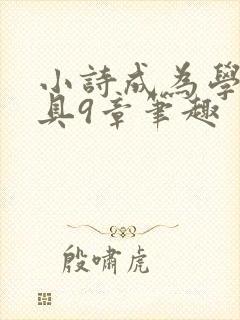 小詩成為學
具9章筆趣
殷嘯虎